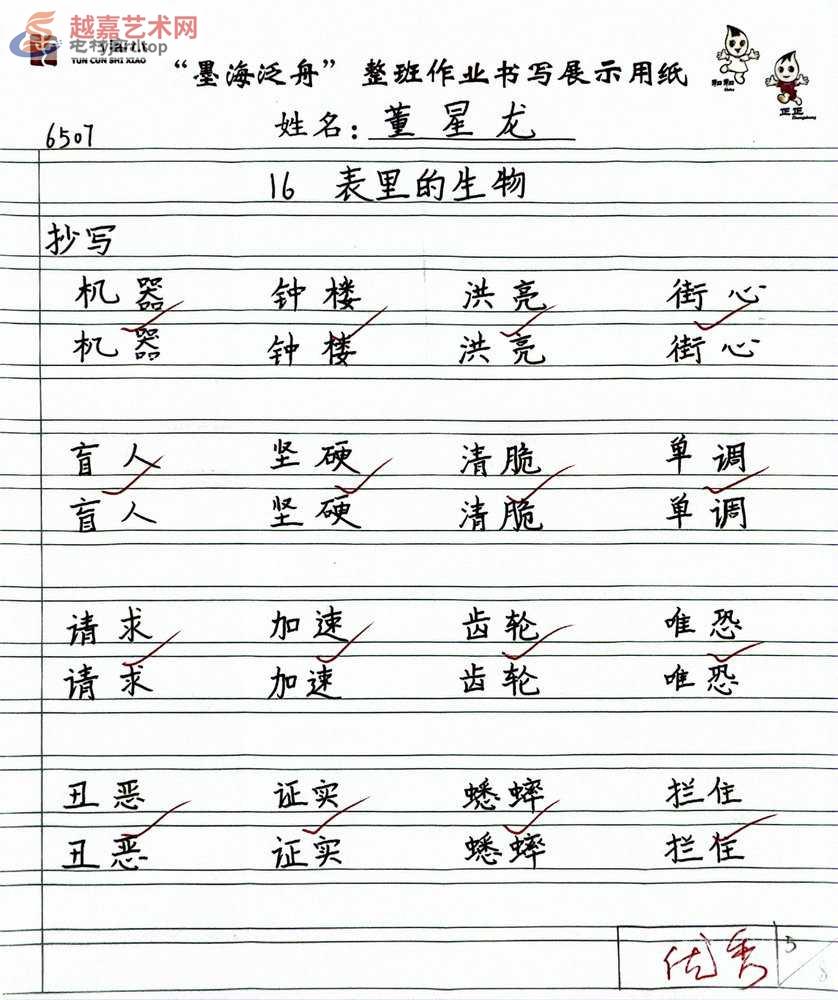 越嘉艺术网
yjart.top
YUN CUN SHI XIAO
“墨海泛舟”整班作业书写展示用纸
和和
Hehe
正正
Zhengzheng
6507
姓名：董星龙
16 表里的生物
抄写
机器 钟楼 洪亮 街心
机器 钟楼 洪亮 街心
盲人 坚硬 清脆 单调
盲人 坚硬 清脆 单调
请求 加速 齿轮 唯恐
请求 加速 齿轮 唯恐
丑恶 证实 蟋蟀 拦住
丑恶 证实 蟋蟀 拦住
优秀
5
8